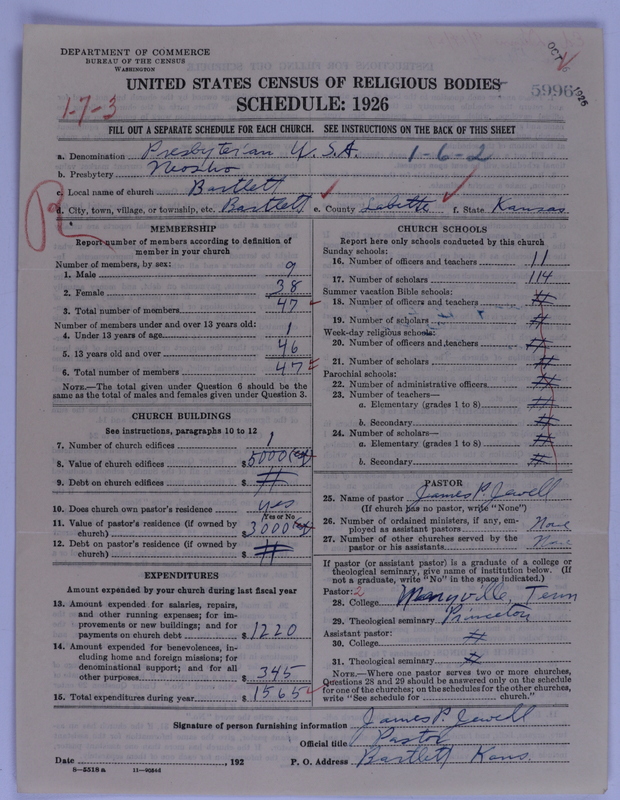 DEPARTMENT OF COMMERCE
BUREAU OF THE CENSUS
WASHINGTON
OCT 1926
5996
UNITED STATES CENSUS OF RELIGIOUS BODIES
1-7-3
SCHEDULE: 1926
FILL OUT A SEPARATE SCHEDULE FOR EACH CHURCH. SEE INSTRUCTIONS ON THE BACK OF THIS SHEET
a. Denomination Presbyterian U.S.A. 1-6-2
b. Presbytery Neosho
c. Local name of church Bartlett
d. City, town, village, or township, etc. Bartlett e. County Labette f. State Kansas
MEMBERSHIP
Report number of members according to definition of
member in your church
Number of members, by sex:
1. Male 9
2. Female 38
3. Total number of members 47
Number of members under and over 13 years old:
4. Under 13 years of age 1
5. 13 years old and over 46
6. Total number of members 47
NOTE.—The total given under Question 6 should be
same as the total of males and females given under Question 3.
CHURCH BUILDINGS
See instructions, paragraphs 10 to 12
7. Number of church edifices 1
8. Value of church edifices $5000 (est)
9. Debt on church edifices $
10. Does church own pastor's residence yes
(Yes or No)
11. Value of pastor's residence (if owned by
church) $3000 (est)
12. Debt on pastor's residence (if owned by
church) $
EXPENDITURES
Amount expended by your church during last fiscal year
13. Amount expended for salaries, repairs,
and other running expenses; for im-
provements or new buildings; and for
payments on church debt $1220
14. Amount expended for benevolences, in-
cluding home and foreign missions; for
denominational support; and for all
other purposes $345
15. Total expenditures during year $1565
CHURCH SCHOOLS
Report here only schools conducted by this church
Sunday schools:
16. Number of officers and teachers 11
17. Number of scholars 114
Summer vacation Bible schools:
18. Number of officers and teachers
19. Number of scholars
Week-day religious schools:
20. Number of officers and teachers
21. Number of scholars
Parochial schools:
22. Number of administrative officers
23. Number of teachers—
a. Elementary (grades 1 to 8)
b. Secondary
24. Number of scholars—
a. Elementary (grades 1 to 8)
b. Secondary
PASTOR
25. Name of pastor James P. Jewell
(If church has no pastor, write "None")
26. Number of ordained ministers, if any, em-
ployed as assistant pastors None
27. Number of other churches served by the
pastor or his assistants None
If pastor (or assistant pastor) is a graduate of a college or
theological seminary, give name of institution below. (If
not a graduate, write "No" in the space indicated.)
Pastor: 2
28. College Maryville, Tenn
29. Theological seminary Princeton
Assistant pastor:
30. College
31. Theological seminary
NOTE.—Where one pastor serves two or more churches,
Questions 28 and 29 should be answered only on the schedule
for one of the churches; on the schedules for the other churches,
write "See schedule for church."
Signature of person furnishing information James P. Jewell
Official title Pastor
Date , 192 P. O. Address Bartlett Kans.
8-5518 a 11-9054d